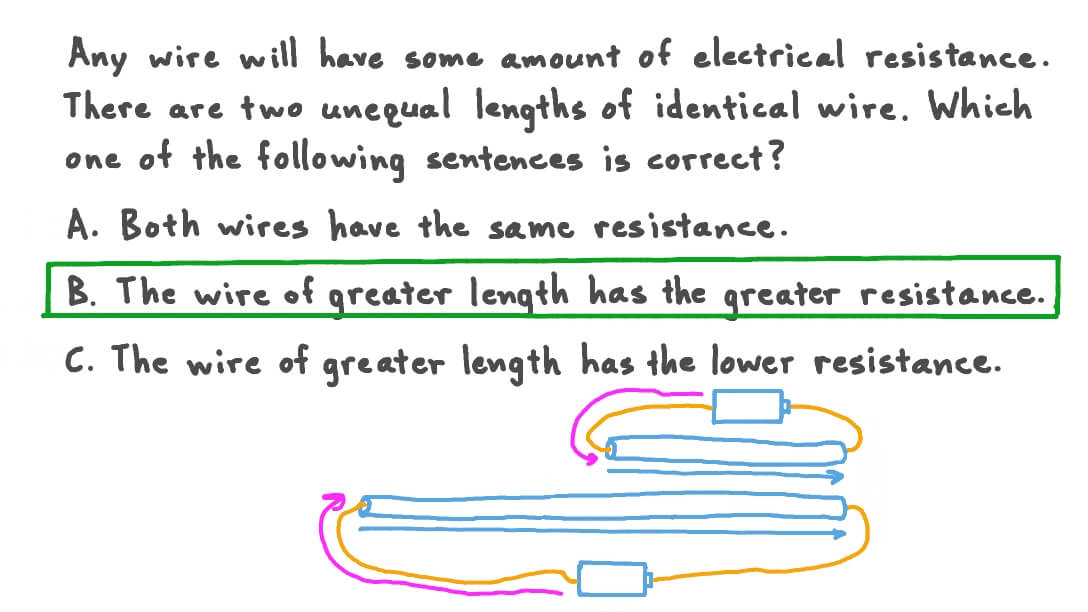 Any wire will have some amount of electrical resistance.
There are two unequal lengths of identical wire. Which
one of the following sentences is correct?
A. Both wires have the same resistance.
B. The wire of greater length has the greater resistance.
C. The wire of greater length has the lower resistance.